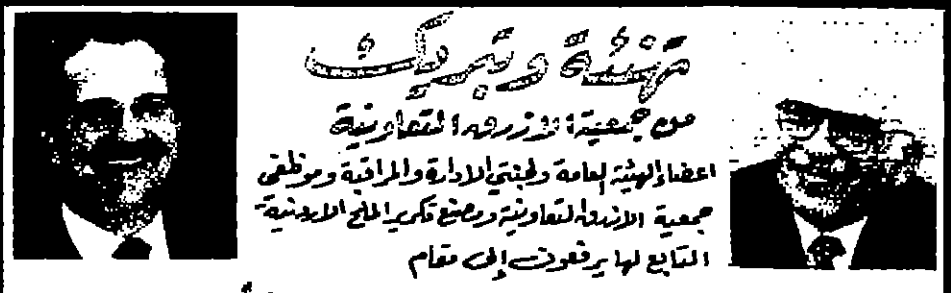 تهنئة وتبريك
من جمعية الازرق التعاونية
اعضاء الهيئة العامة ولجنتي الادارة والمراقبة وموظفي
جمعية الازرق التعاونية ومصنع تكرير الملح الاردنية
التابع لها يرفعون إلى مقام